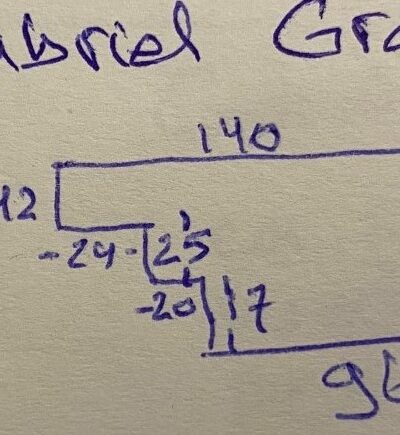 abriel Gra
140
12
-24- 25
-20 17
96